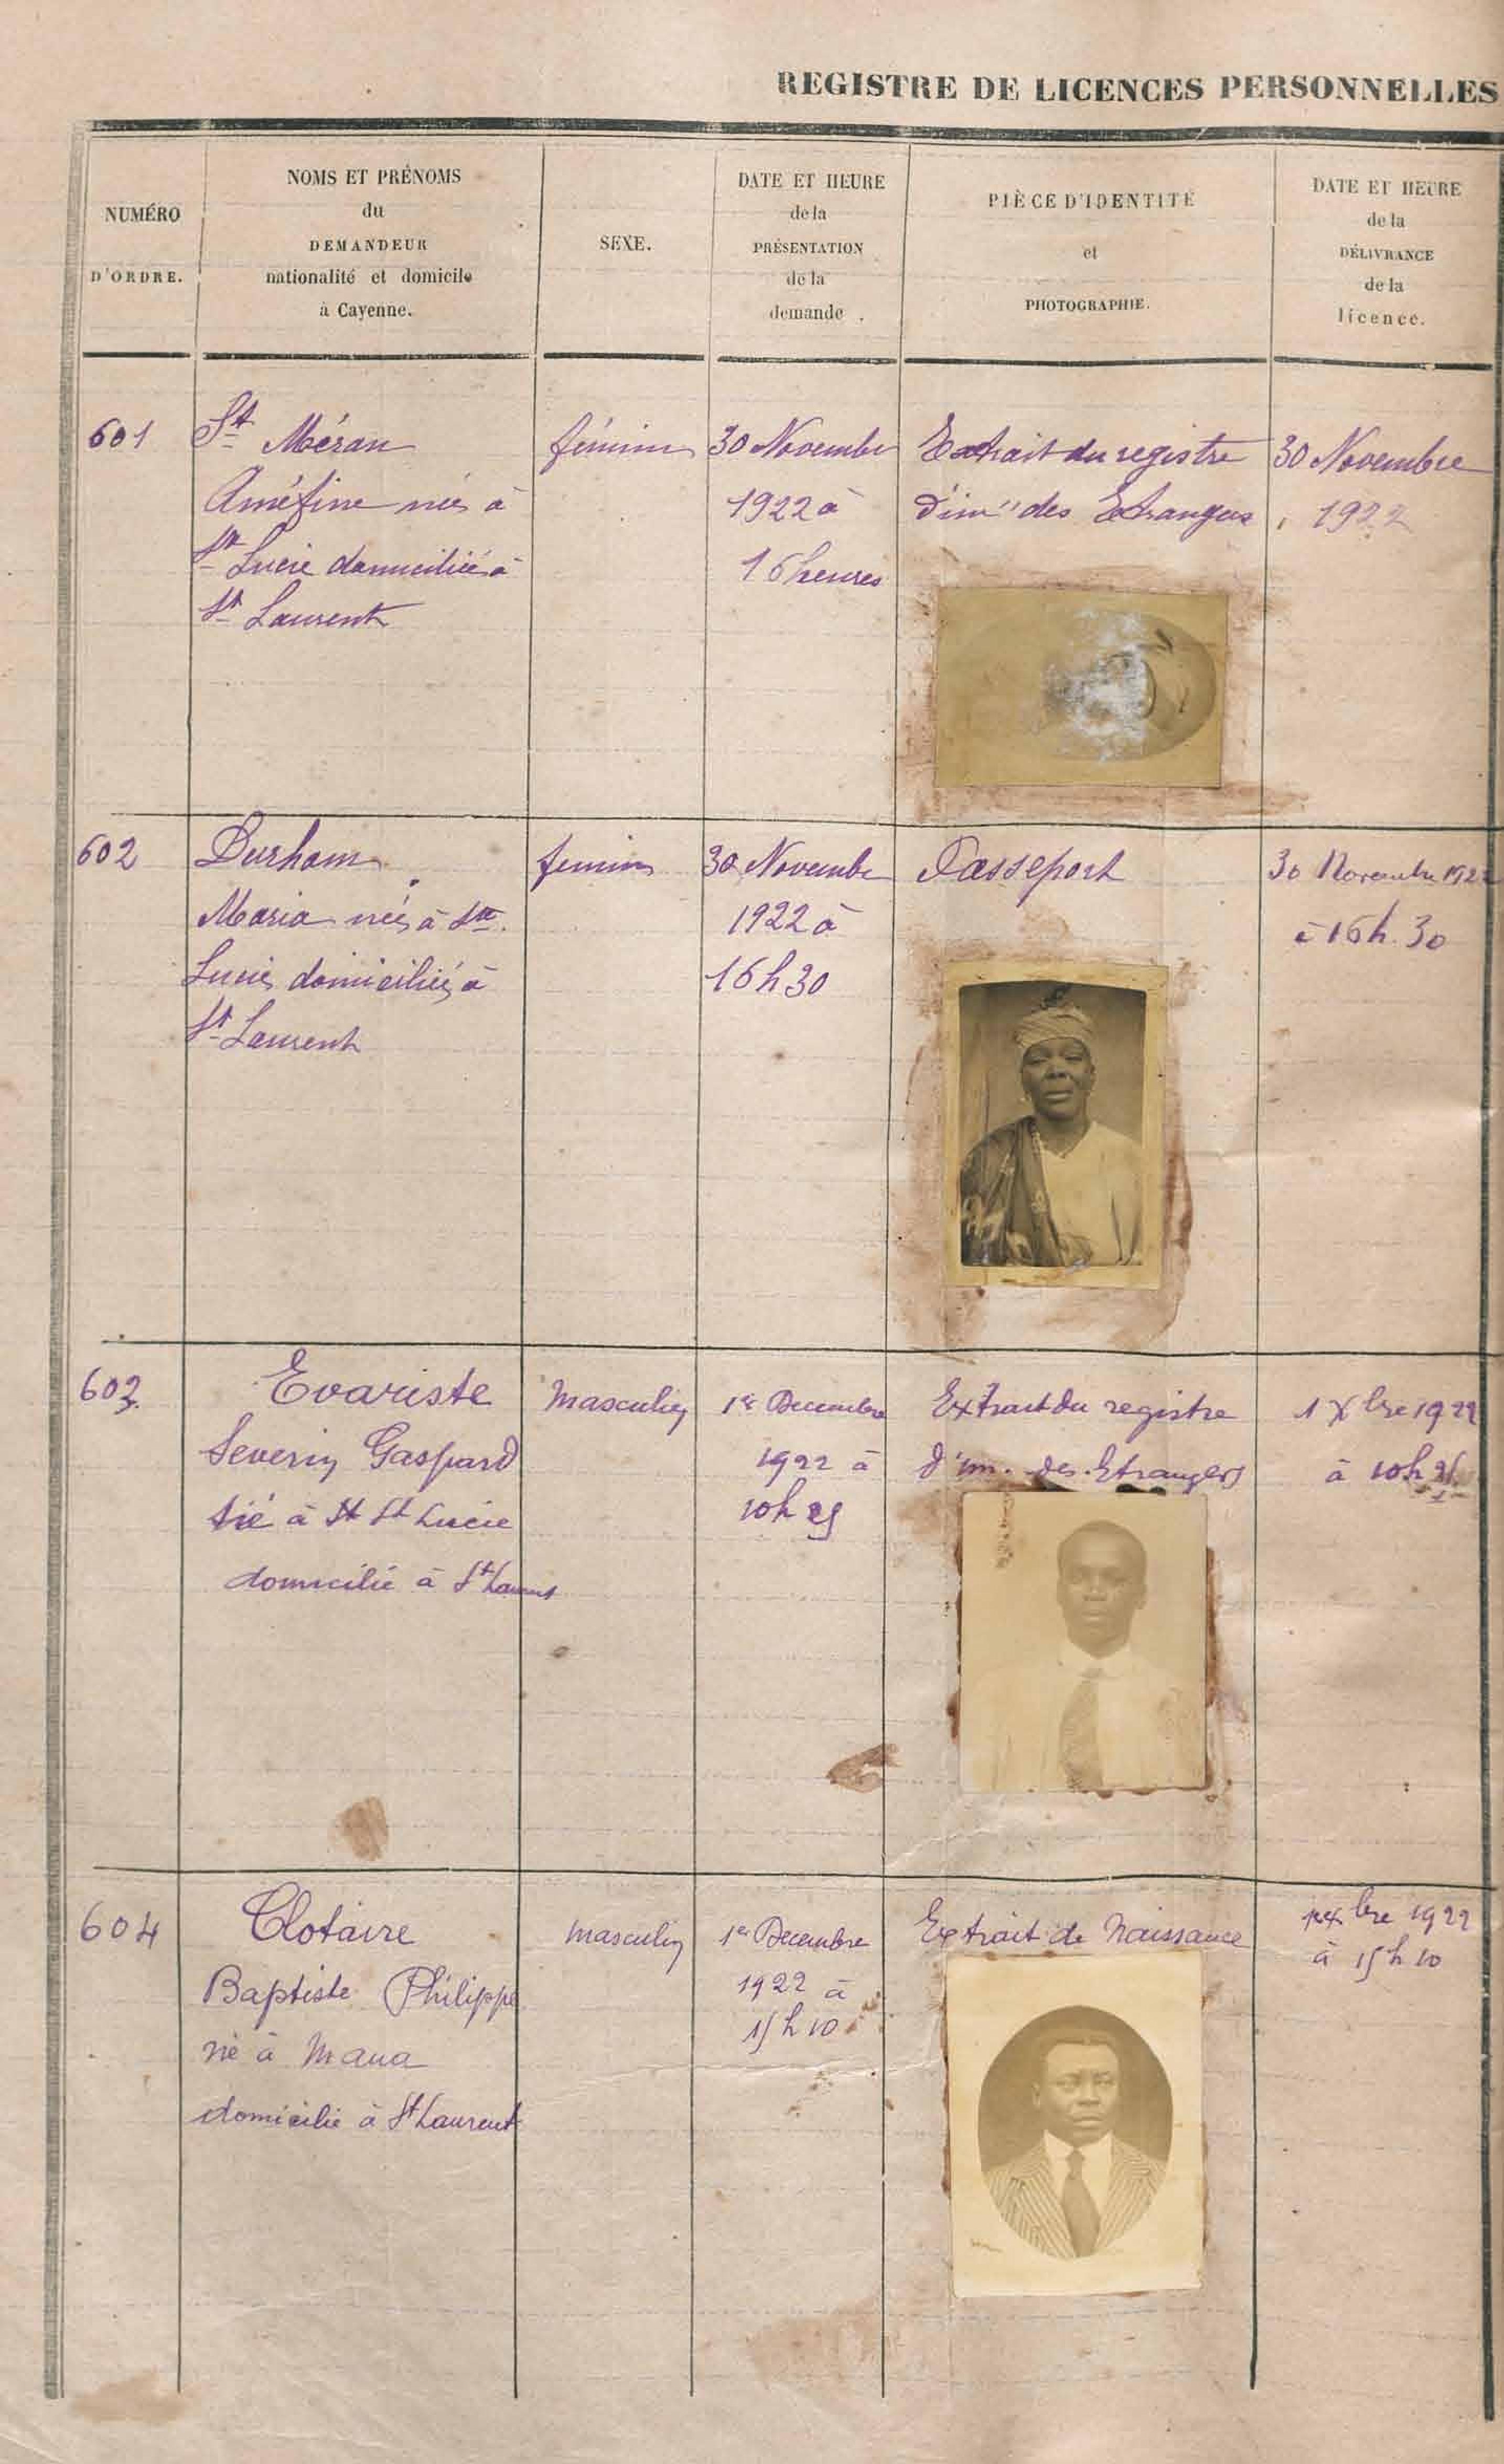 REGISTRE DE LICENCES PERSONNELLES
NUMÉRO
D'ORDRE.
NOMS ET PRÉNOMS
du
DEMANDEUR
nationalité et domicile
à Cayenne.
SEXE.
DATE ET HEURE
de la
PRÉSENTATION
de la
demande
PIÈCE D'IDENTITÉ
et
PHOTOGRAPHIE.
DATE ET HEURE
de la
DÉLIVRANCE
de la
licence.
601
St Méran
Améfine née à
Ste Lucie domiciliée à
St Laurent
féminin
30 Novembre
1922 à
16 heures
Extrait du registre
d'im des Etrangers
30 Novembre
1922
602
Durham
Maria née à Ste
Lucie domiciliée à
St Laurent
feminin
30 Novembre
1922 à
16 h 30
Passeport
30 Novembre 1922
à 16 h. 30
603
Evariste
Severin Gaspard
né à St Lucie
domicilié à St Laurent
Masculin
1er Decembre
1922 à
10 h 25
Extrait du registre
d'im. des Etrangers
1 Xbre 1922
à 10 h
604
Clotaire
Baptiste Philippe
né à Mana
domicilié à St Laurent
masculin
1er Decembre
1922 à
15 h 10
Extrait de Naissance
1er Xbre 1922
à 15 h 10